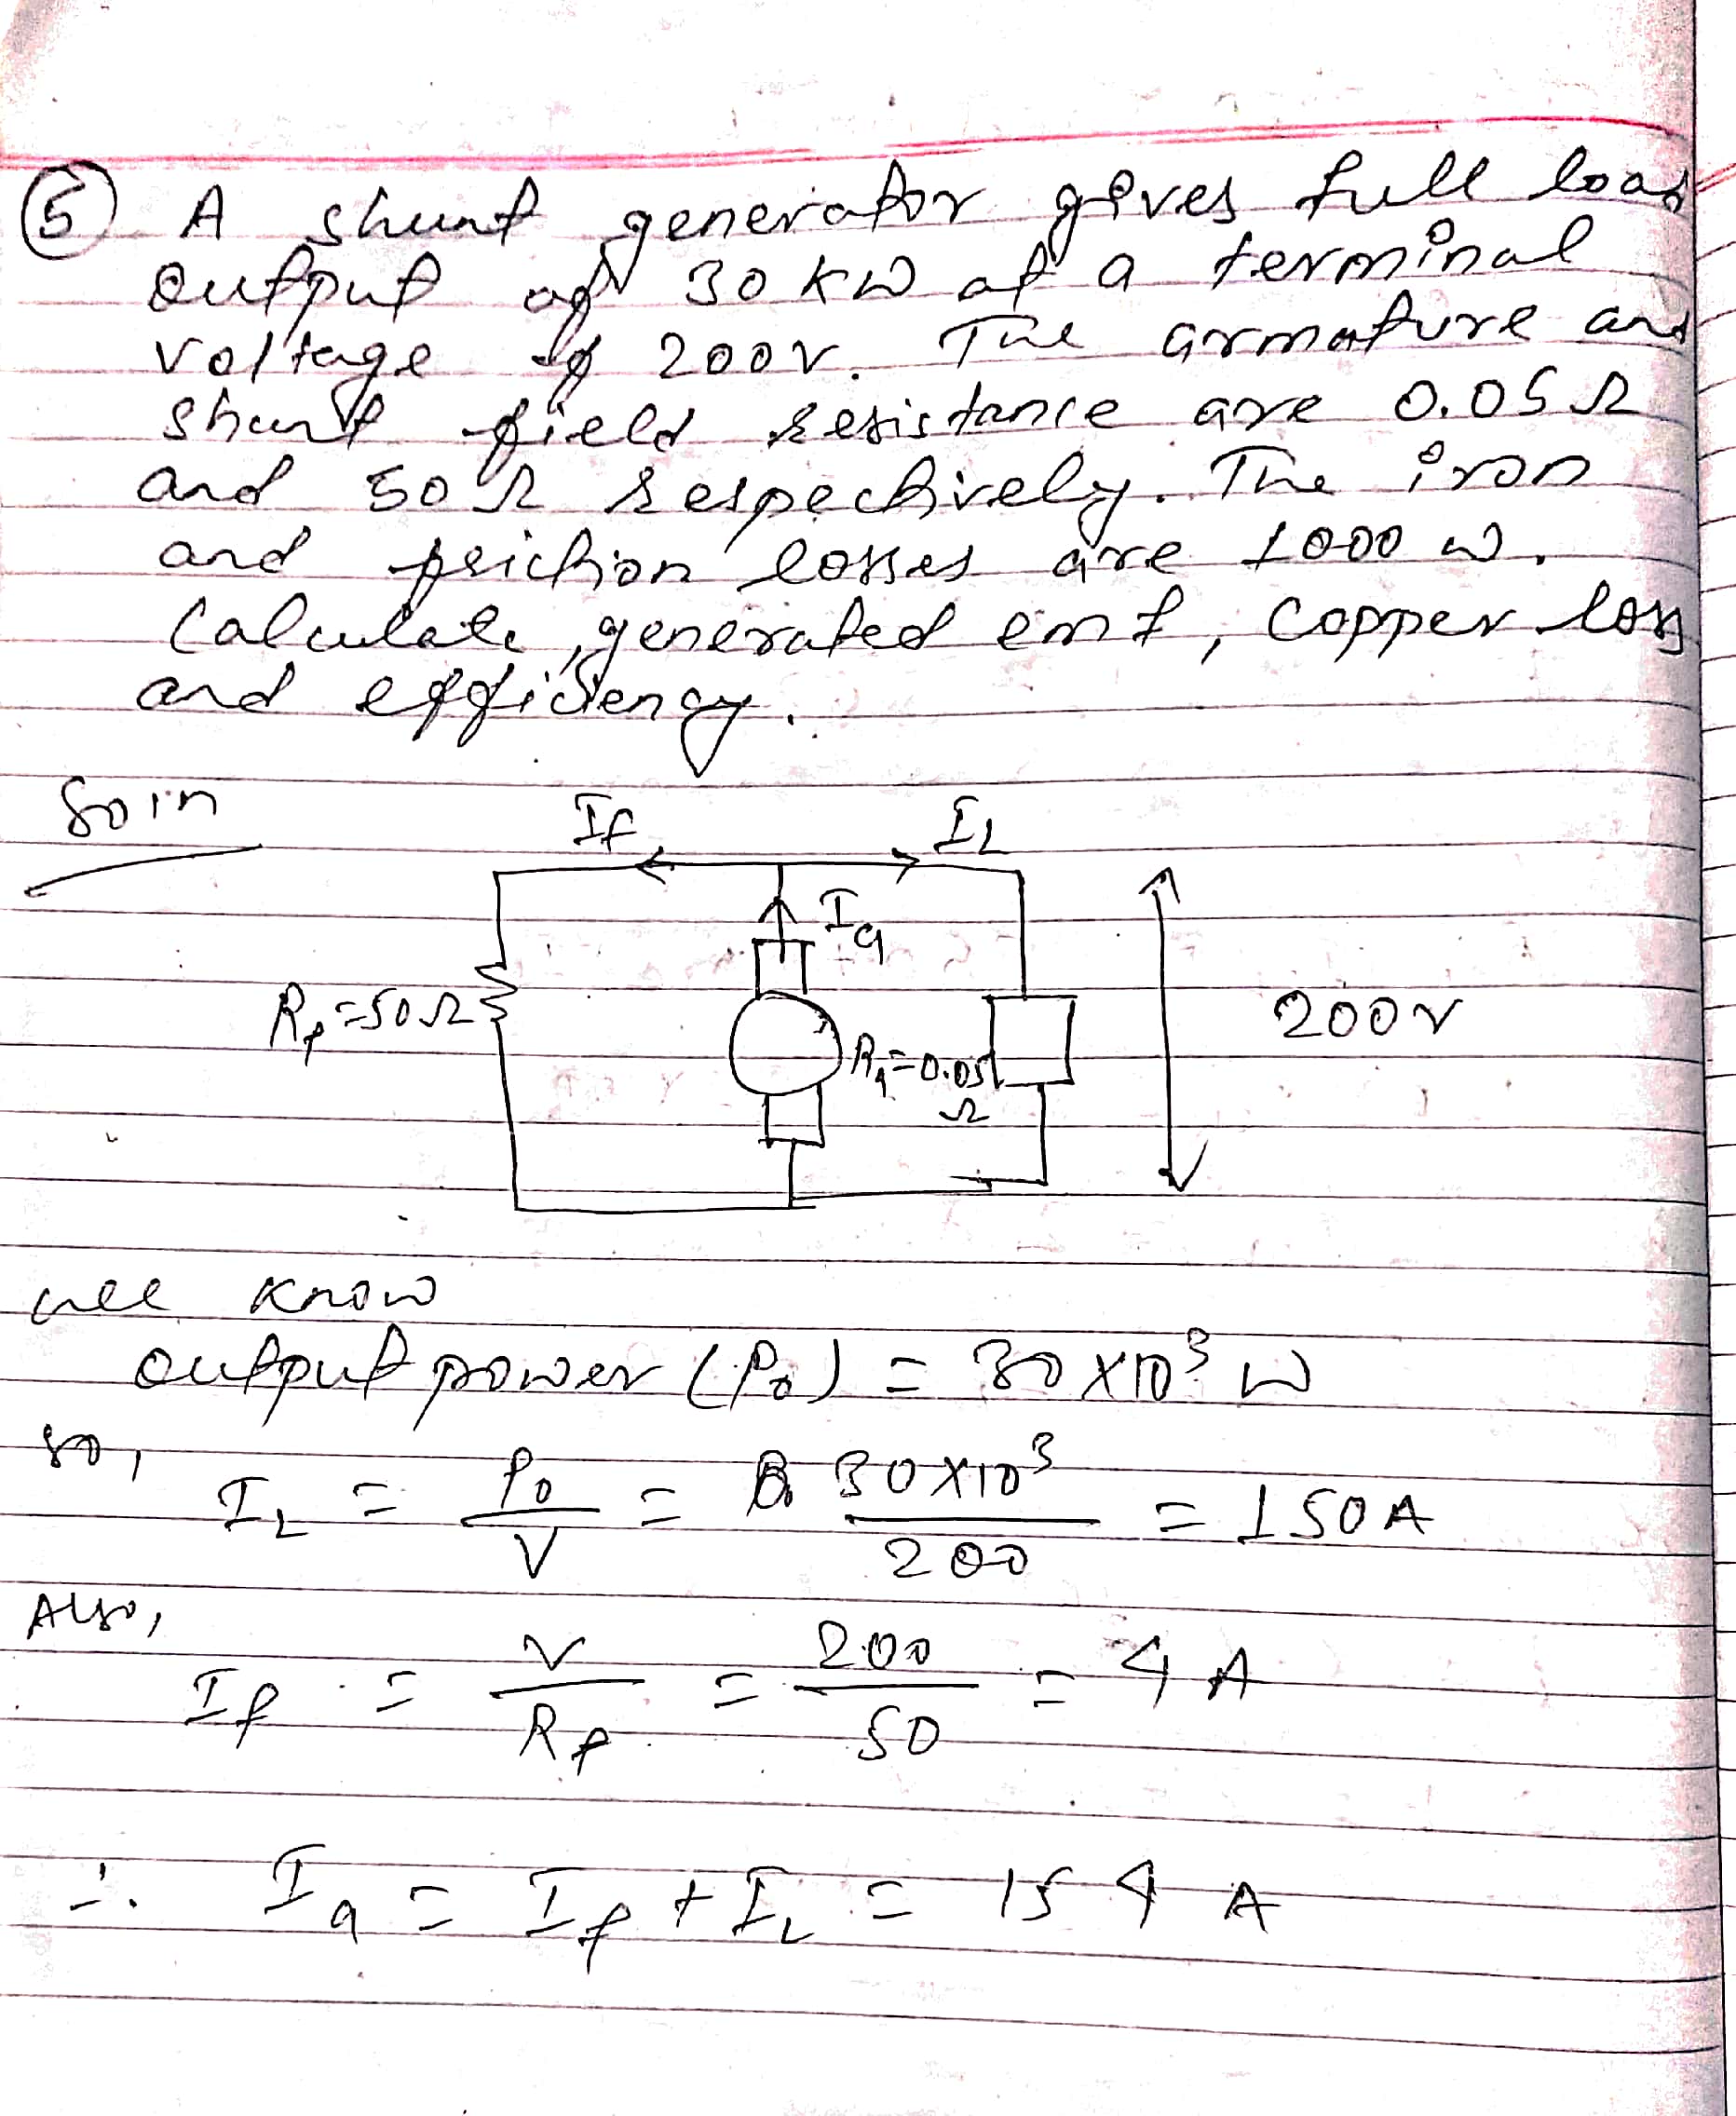 5 A shunt generator gives full load
output of 30 KW at a terminal
voltage of 200V. The armature and
shunt field resistance are 0.05 Ω
and 50 Ω respectively. The iron
and friction losses are 1000 W.
Calculate, generated emf, copper loss
and efficiency.
Soln
If IL
Ia
Rf=50Ω
Ra=0.05
Ω
200V
we know
output power (Po) = 30 X10³ W
so,
IL = Po/V = 30X10³/200 = 150A
Also,
If = V/Rf = 200/50 = 4 A
∴ Ia = If + IL = 154 A